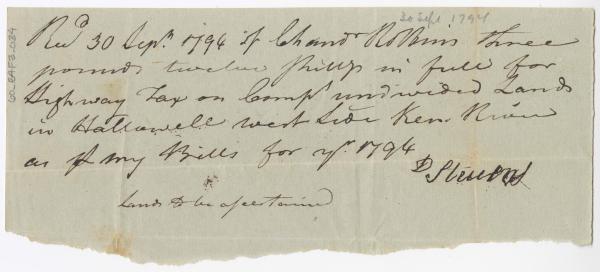 30 Sept 1794
Recd 30 Sepr. 1794 of Chandr Robbins three
pounds twelve shillgs in full for
Highway Tax on Compy undivided Lands
in Hallowell west side Ken River
as pr my Bills for yr. 1794
D Stevens
Lands to be ascertained